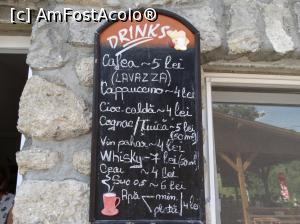 [c] AmFostAcolo®
DRINKS
Cafea ~ 5 lei
(LAVAZZA)
Cappuccino ~ 4 lei
Cioc. caldă ~ 4 lei
Cognac/Țuică ~ 5 lei
(50ml)
Vin pahar ~ 4 lei
Whisky ~ 7 lei (50ml)
Ceai ~ 4 lei
Suc 0,5 ~ 6 lei
Apă min.
plată 4 lei